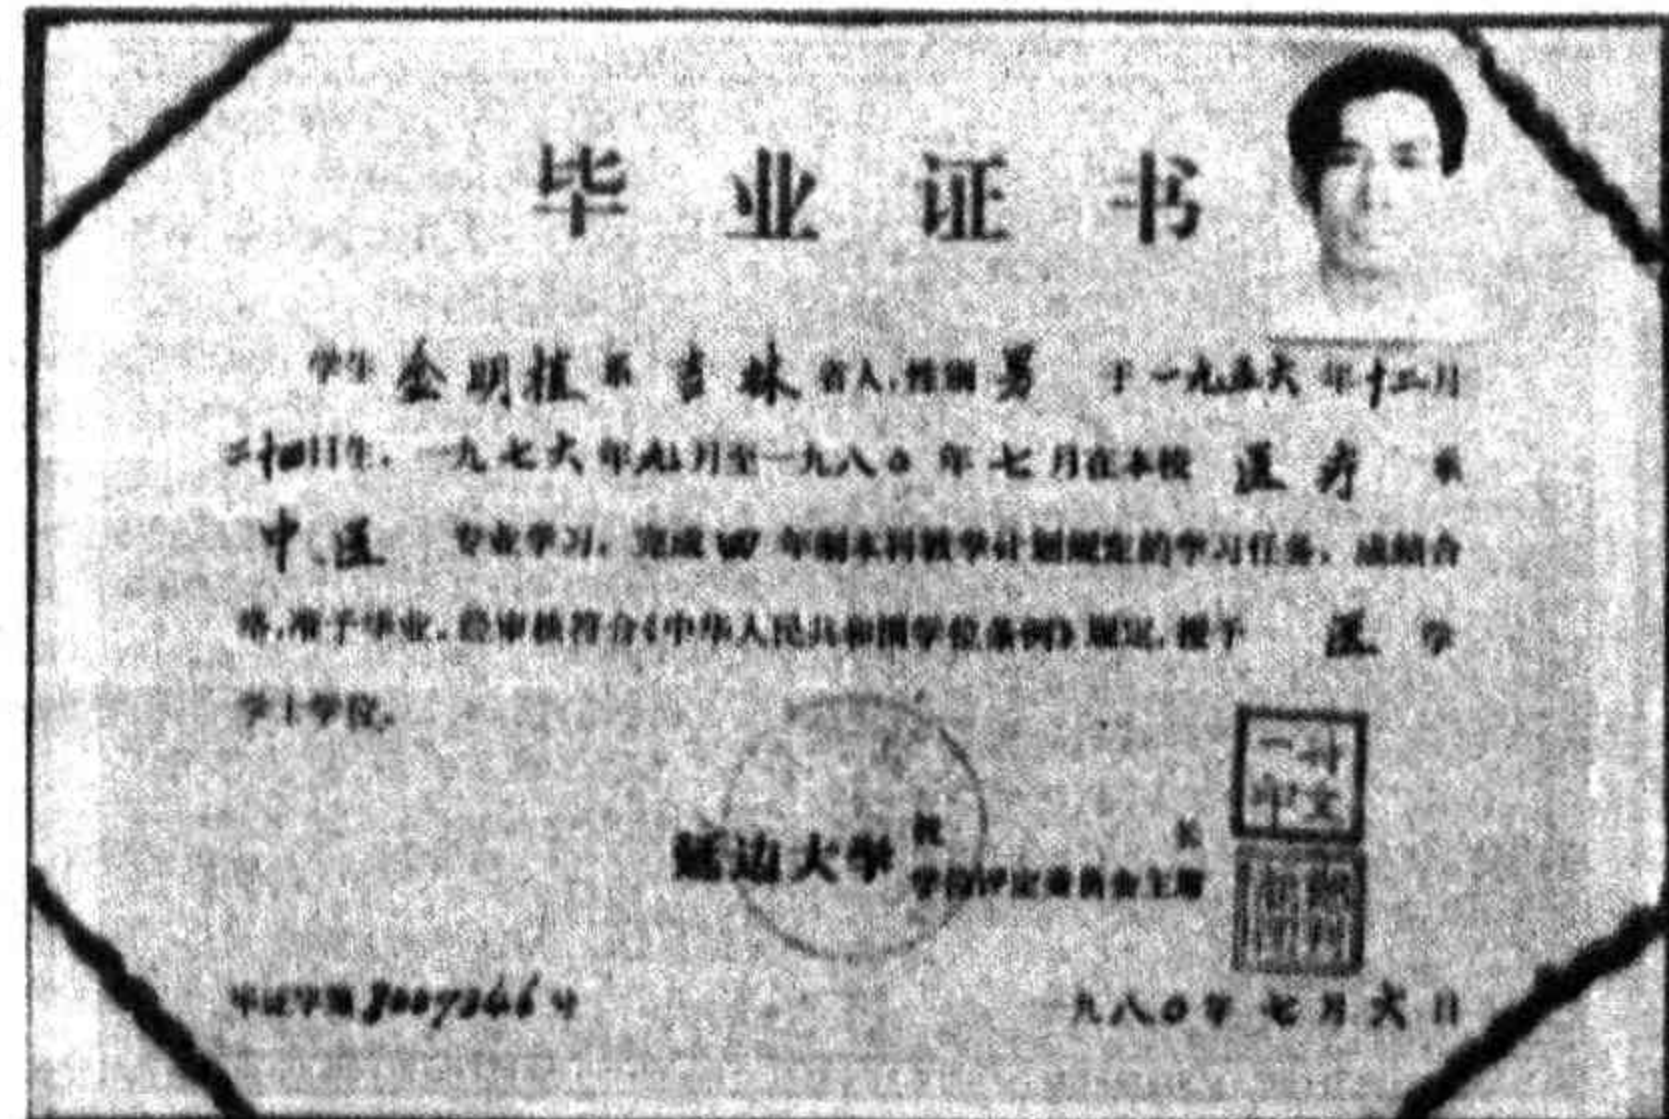 毕业证书
学生 金明植 系 吉林 省人,性别 男 于一九五六年十二月
二十四日生,一九七六年九月至一九八〇年七月在本校 医疗 系
中医 专业学习,完成四年制本科教学计划规定的学习任务,成绩合
格,准予毕业,经审核符合《中华人民共和国学位条例》规定,授予 医 学
学士学位。
延边大学 校长
学位评定委员会主席
毕证字第 号
一九八〇年七月六日